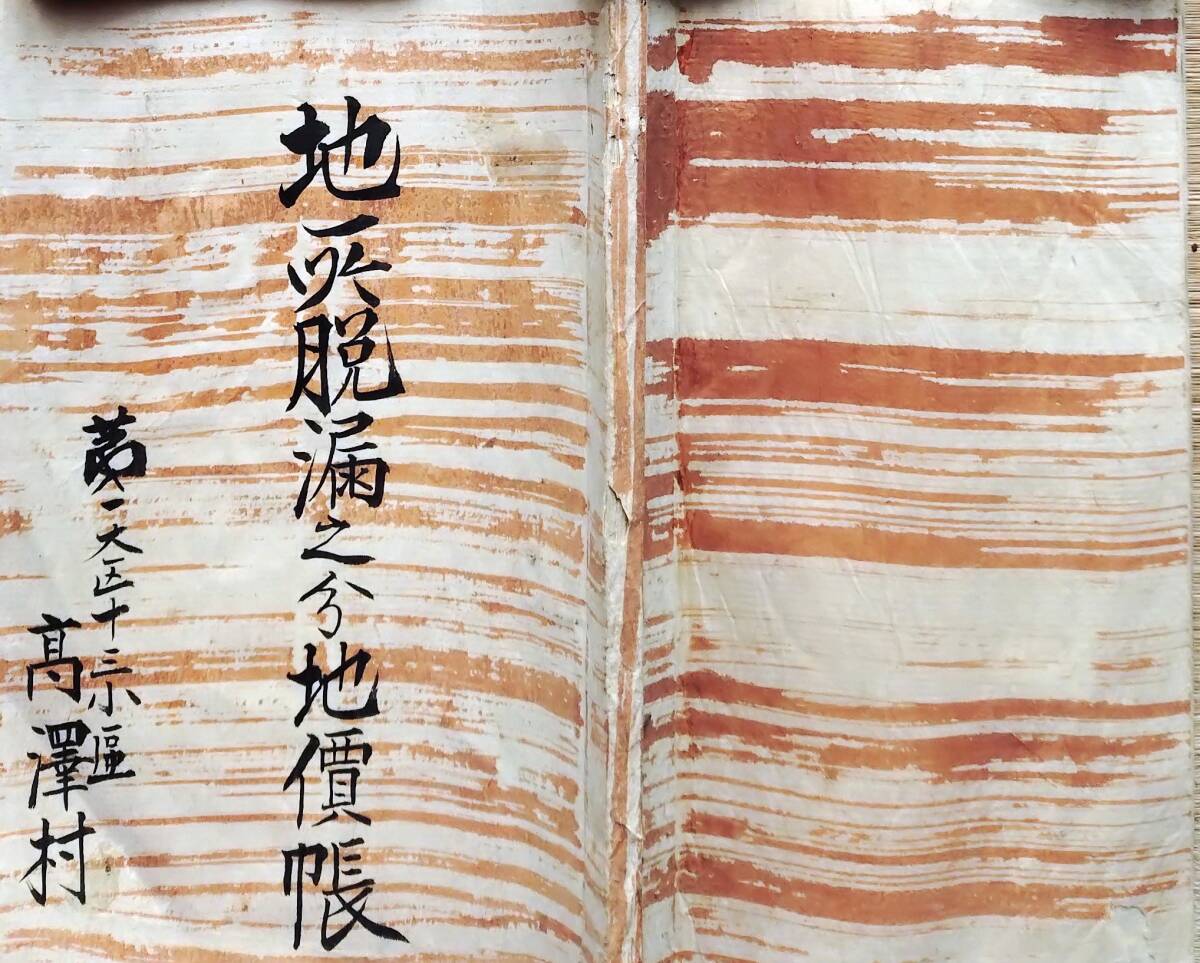 地所脱漏之分地價帳
第一大区十三小區
髙澤村